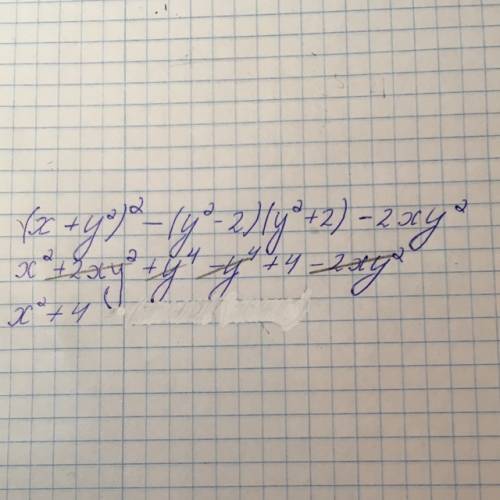 (x + y²)² - (y² - 2)(y² + 2) - 2xy²
x² + 2xy² + y⁴ - y⁴ + 4 - 2xy²
x² + 4